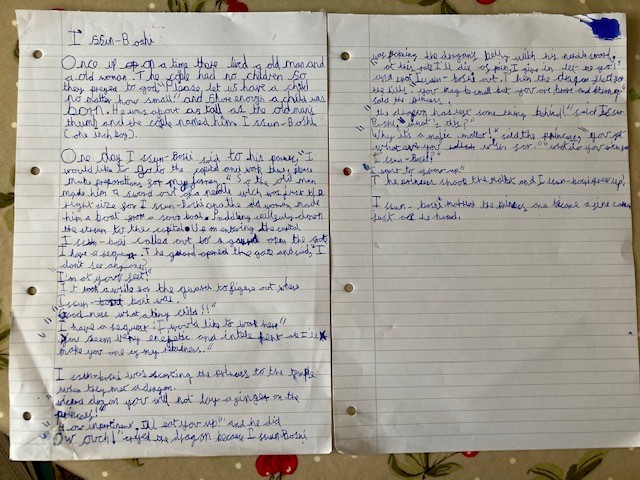 Issun-Boshi
Once up on a time there lived a old man and
a old woman. The cople had no children so
they prayed to god "Please let us have a child
no matter how small" and Shore enough a child was
born. He was apart as tall as the old man's
thumb and the cople named him Issun-Boshi
(one inch boy).
One day Issun-Boshi said to his parents, "I
would like to go to the capital and work there, please
make preparations for my jorney." So the old man
made him a sword out of a needle witch was just the
right size for Issun-Boshi and the old women made
him a boat from a soup bowl. Paddling down
the stream to the capital. Upon entering the capital
Issun-boshi called out to a guard open the gate
I have a request. The guard opened the gate and said, "I
don't see anyone."
I'm at your feet!
It took a while for the guard to figure out where
Issun-boshi was.
Goodness what a tiny child!!"
I have a request. I would like to work here"
You seem very and I'll
make you one of my
Issun-boshi was escorting the princess to the temple
when they met a dragon.
dragon you will not lay a finger on the
princess!"
I'll eat you up" and he did
Ow ouch!" cried the dragon because Issun-Boshi
was poking the dragon's belly with his needle sword,
at this rate I'll die of pain I give in let me go!,
and spat Issun-Boshi out. Then the dragon fled for
the hills "you may be small but you are brave and strong"
said the princess.
the dragon has left some thing behind" said Issun
Boshi "what's this?"
Why it's a magic mallet!" said the princess, "you get
what ever you wish for." "what do you wish for
Issun-Boshi?"
I want to grow up"
The princess shook the mallet and Issun-boshi grew up,
Issun-boshi married the princess and became a fine